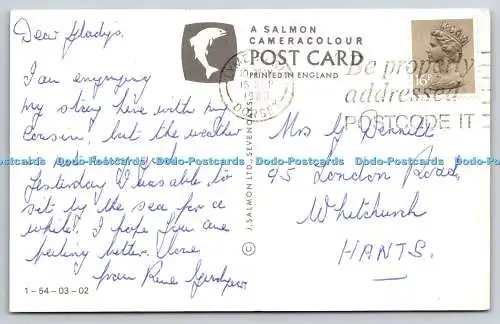 Dear Gladys,
I am engaging
my stay here with my
Cousin, but the weather
Yesterday I was able to
sit by the sea for a
while. I hope you are
feeling better. Love
from Rene
1-54-03-02
A SALMON
CAMERACOLOUR
POST CARD
PRINTED IN ENGLAND
© J. SALMON LTD., SEVENOAKS
15 SEP
1983
DORSET
Be properly
addressed
POSTCODE IT
16
Mrs G Dennett
45 London Road,
Whitchurch
HANTS.
Dodo-Postcards Dodo-Postcards Dodo-Postcards Dodo-Postcards Dodo-Postcards